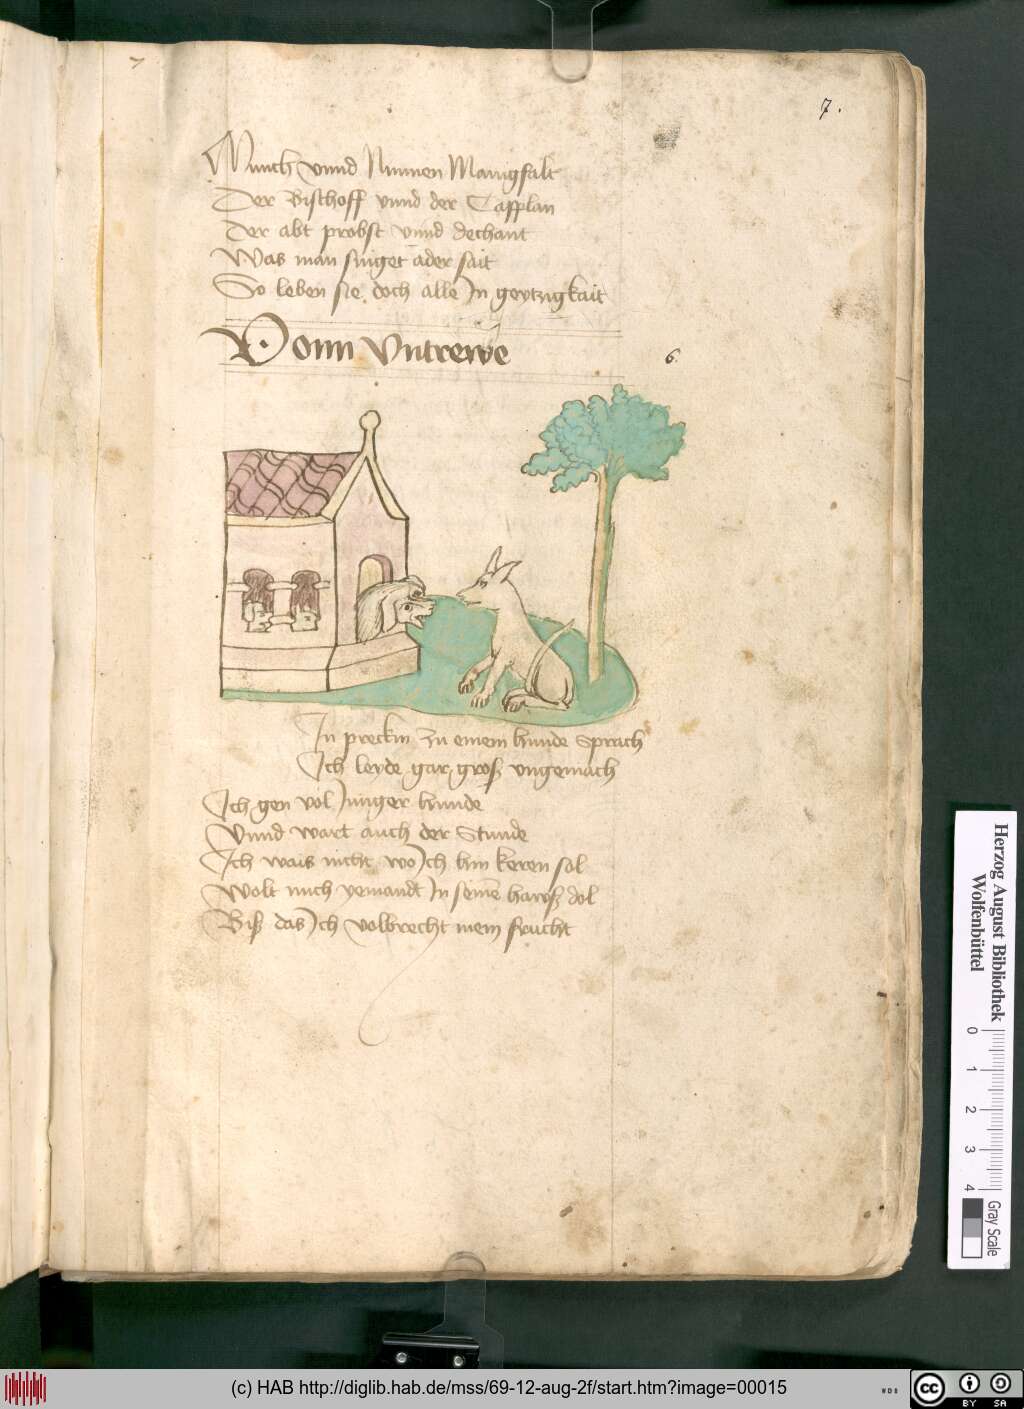 7
7.
Münch vnnd Nunnen Manigfalt
Der Bischoff vnnd der Capplan
Der abt probst vnnd dechant
Was man singet ader sait
So leben sie doch alle Jn geytzigkait
Vonn Vntrewe
6
Jn preckin zu einem hunde Sprach
Jch leyde gar groß vngemach
Jch gen vol Junger hunde
Vnnd wart auch der Stunde
Jch wais nicht wo Jch hin keren sol
Wolt mich yemandt Jn seinē hawß dol
Biß das Jch volbrecht mein frucht
Herzog August Bibliothek
Wolfenbüttel
0 1 2 3 4
Gray Scale
(c) HAB http://diglib.hab.de/mss/69-12-aug-2f/start.htm?image=00015
WDB
cc BY SA